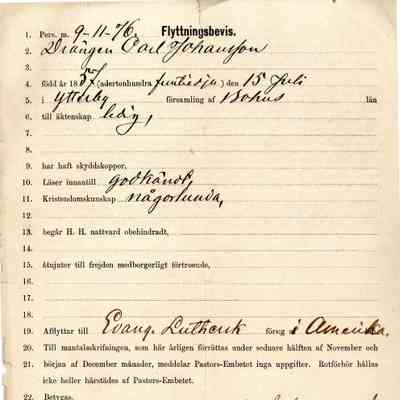 1. Pers. m. 9-11-76. Flyttningsbevis.
2. Drängen Carl Johansson
3.
4. född år 1857 (adertonhundra femtiosju) den 15 Juli
5. i Ytterby församling af Bohus län
6. till äktenskap ledig,
7.
8.
9. har haft skyddskoppor,
10. Läser innantill godkändt,
11. Kristendomskunskap någorlunda,
12.
13. begår H. H. nattvard obehindradt,
14.
15. åtnjuter till frejden medborgerligt förtroende,
16.
17.
18.
19. Afflyttar till Evang. Luthersk förs:g i Amerika.
20. Till mantalsskrifningen, som här årligen förrättas under sednare hälften af November och
21. början af December månader, meddelar Pastors-Embetet inga uppgifter. Rotförhör hållas
icke heller härstädes af Pastors-Embetet.
22. Betygas.